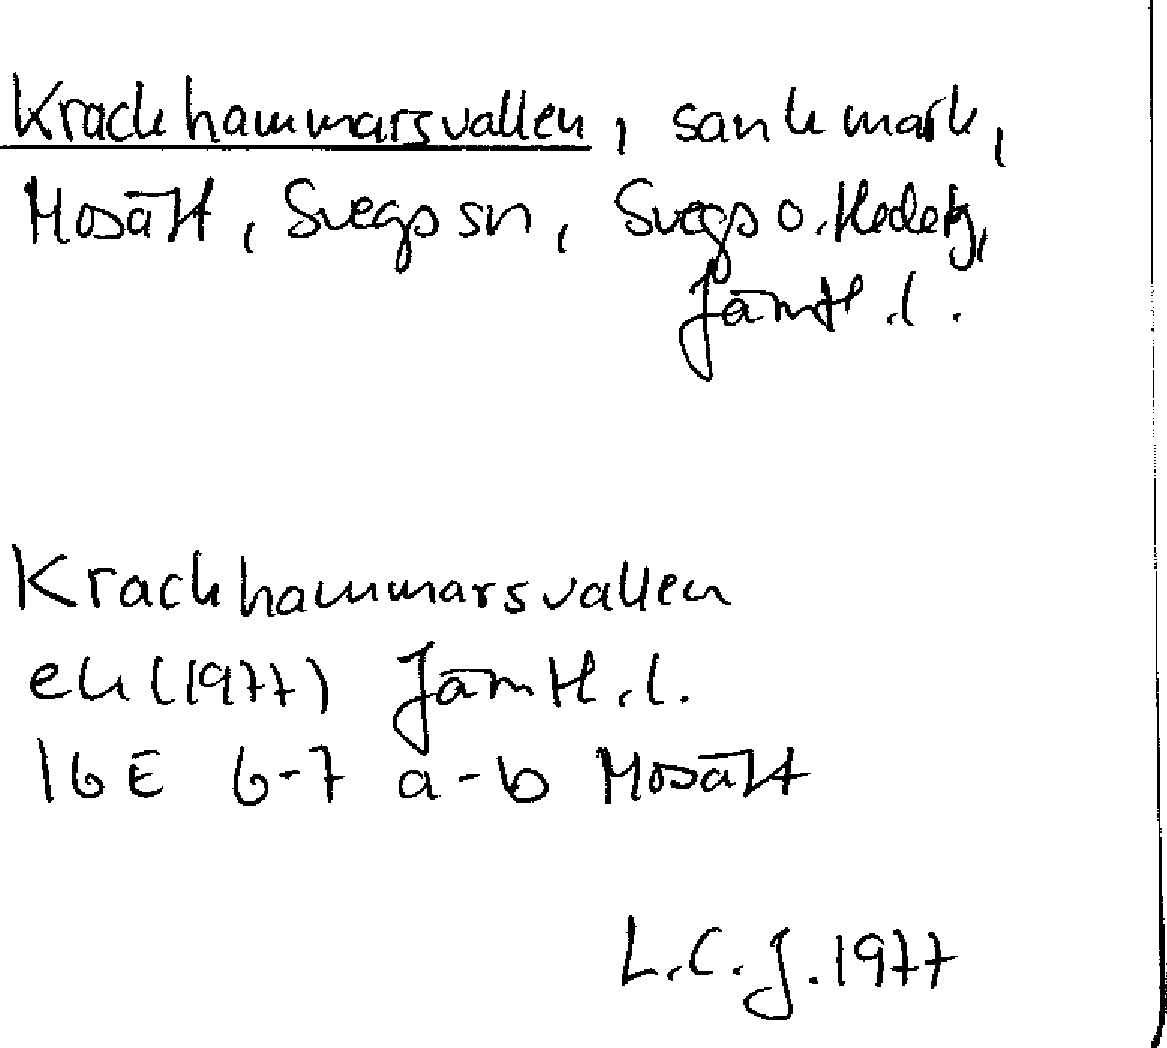 Krackhammarsvallen, sankmark,
Mosätt, Svegs sn, Svegs o. Hedetg,
Jämtl.l.
Krackhammarsvallen
ek (1977) Jämtl.l.
16E 6-7 a-b Mosätt
L.C.J. 1977